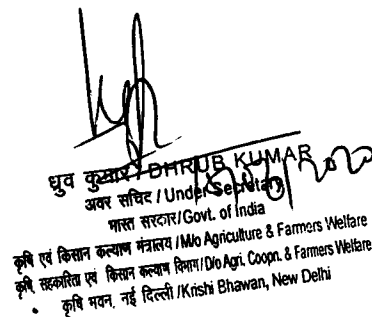 ध्रुव कुमार / DHRUB KUMAR
अवर सचिव / Under Secretary
भारत सरकार/Govt. of India
कृषि एवं किसान कल्याण मंत्रालय / M/o Agriculture & Farmers Welfare
कृषि, सहकारिता एवं किसान कल्याण विभाग/D/o Agri, Coopn. & Farmers Welfare
कृषि भवन, नई दिल्ली /Krishi Bhawan, New Delhi